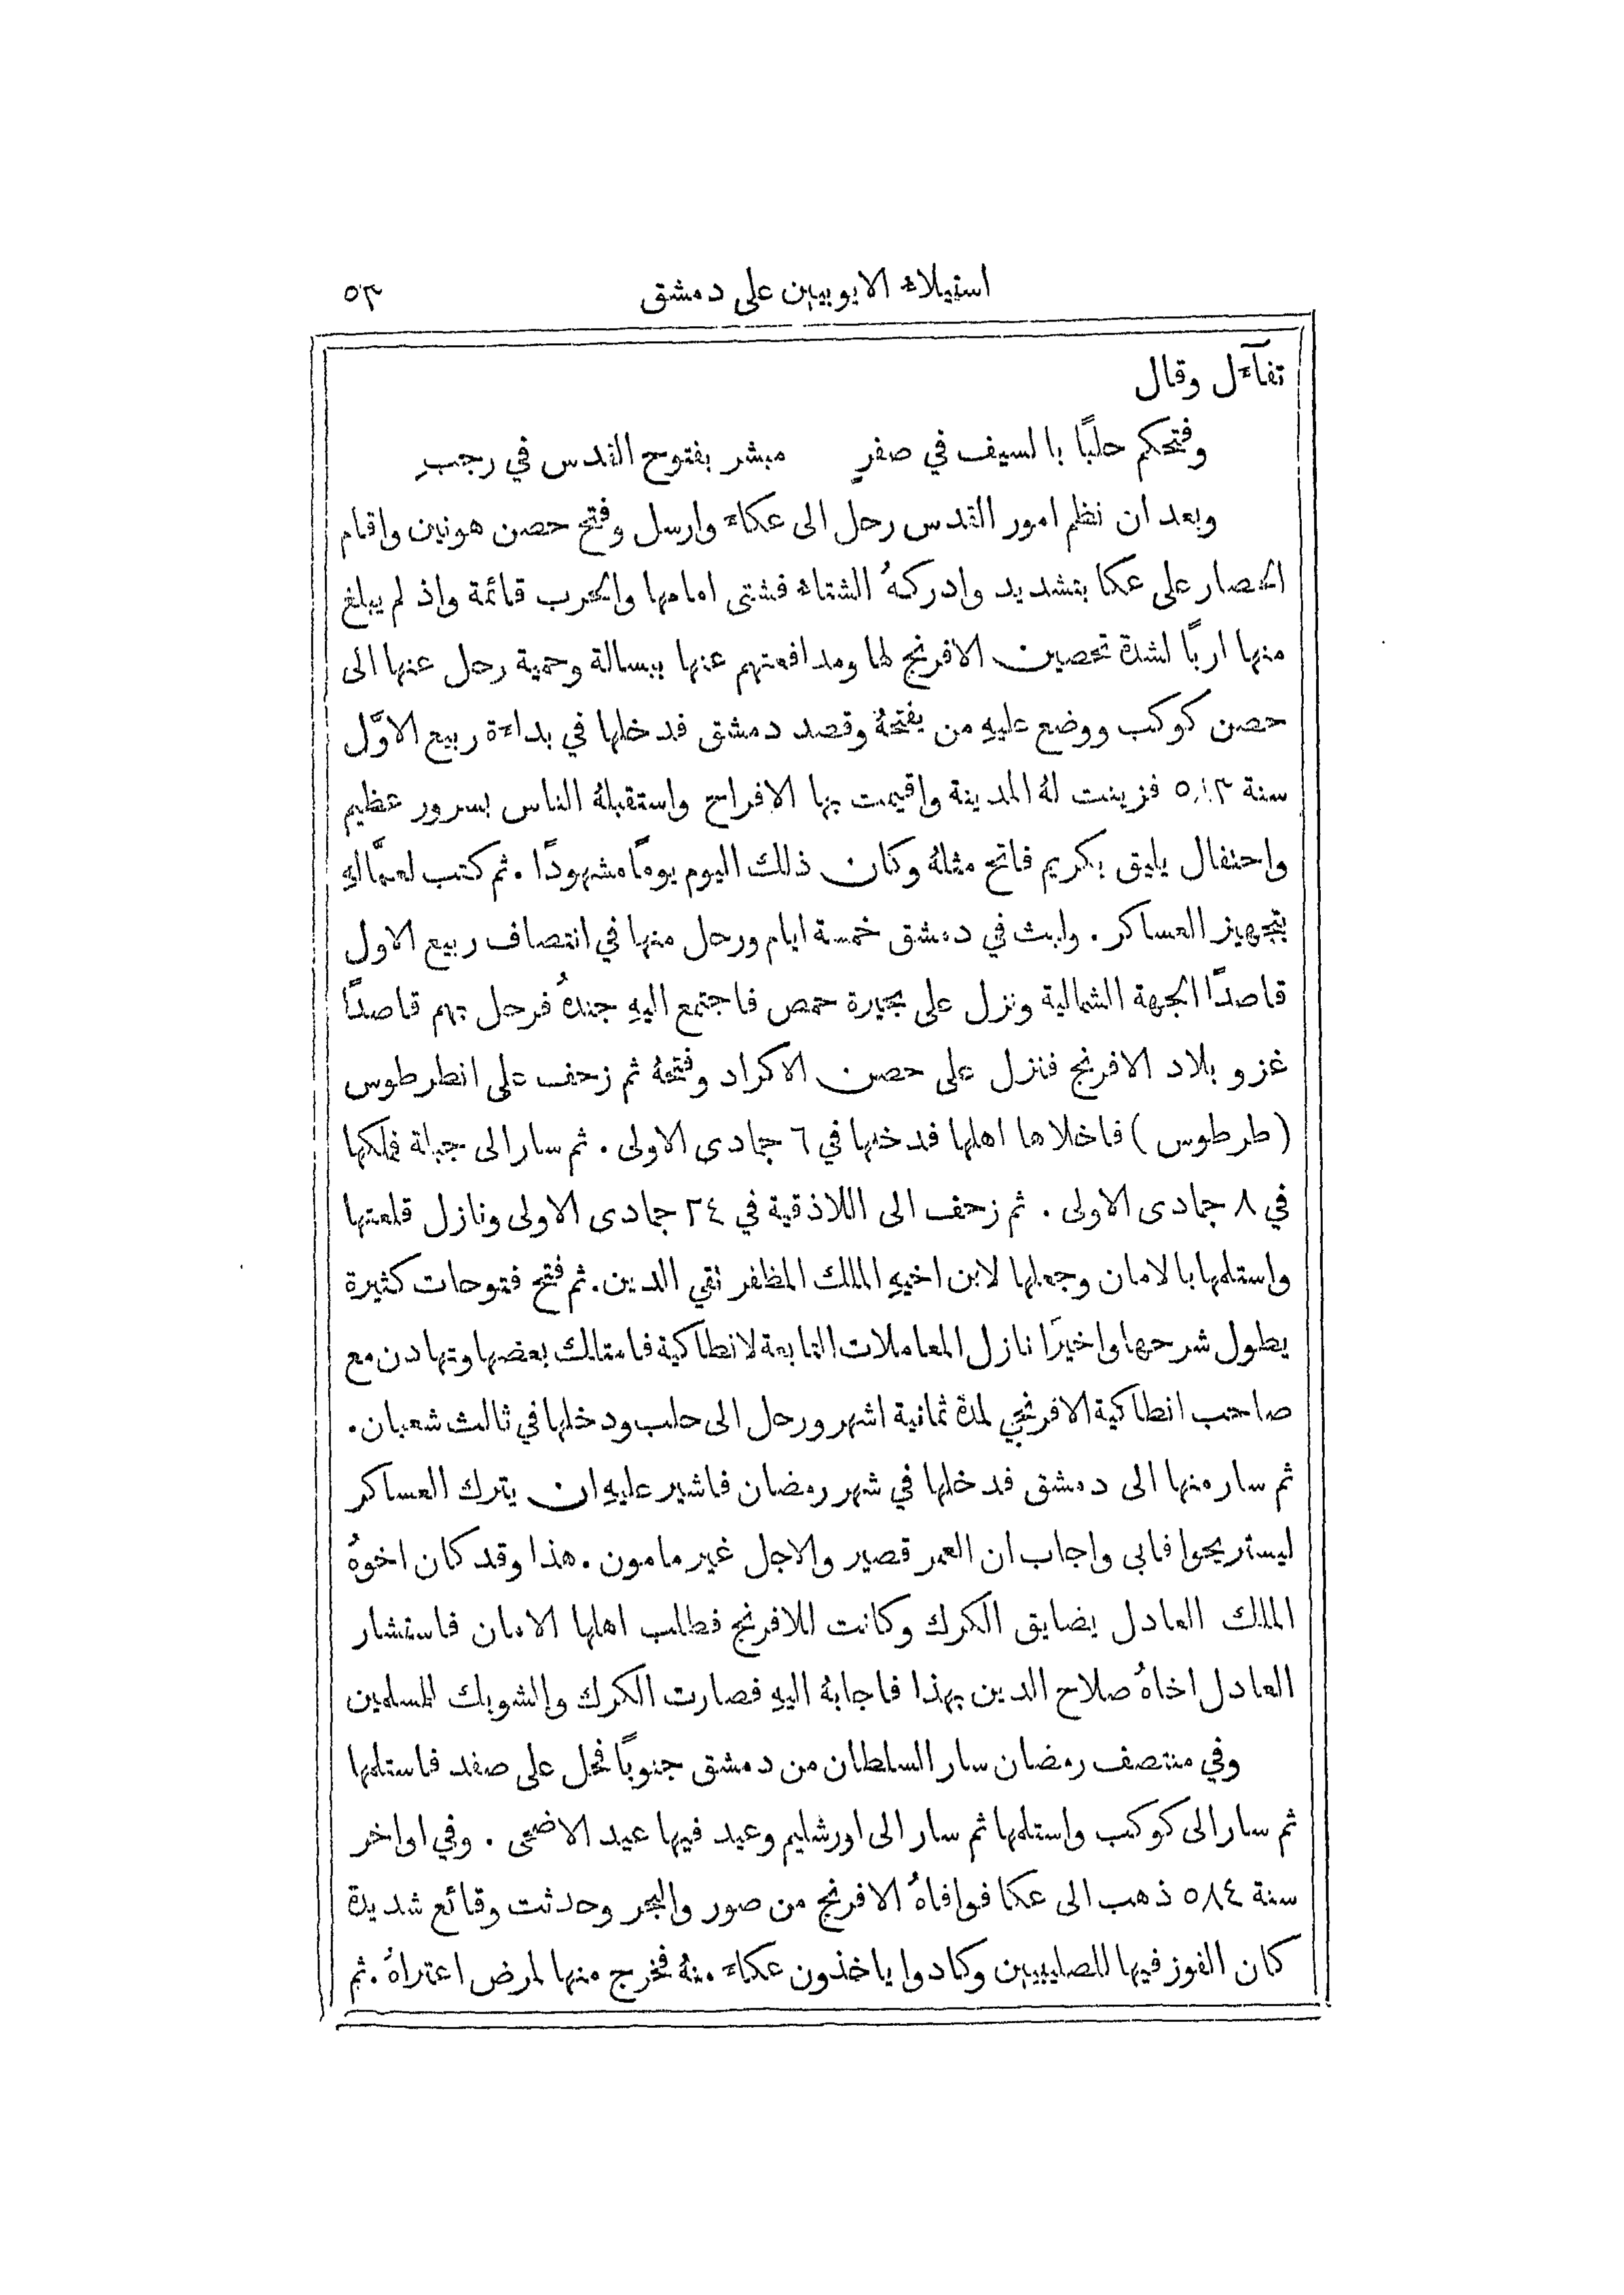 استيلاء الايوبيين على دمشق ٥٣
تفآءل وقال
وفتحكم حلبًا بالسيف في صفرٍ مبشر بفتوح القدس في رجبِ
وبعد ان نظم امور القدس رحل الى عكاء وارسل وفتح حصن هونين واقام
الحصار على عكا بتشديد وادركهُ الشتاء فشتى امامها والحرب قائمة واذ لم يبلغ
منها اربًا لشدة تحصين الافرنج لها ومدافعتهم عنها ببسالة وحمية رحل عنها الى
حصن كوكب ووضع عليهِ من يفتحهُ وقصد دمشق فدخلها في بداءة ربيع الاوَّل
سنة ٥٨٣ فزينت لهُ المدينة واقيمت بها الافراح واستقبلهُ الناس بسرور عظيم
واحتفال يليق بكريم فاتح مثلهُ وكان ذلك اليوم يومًا مشهودًا . ثم كتب لعمَّالهِ
بتجهيز العساكر . ولبث في دمشق خمسة ايام ورحل منها في انتصاف ربيع الاول
قاصدًا الجهة الشمالية ونزل على بحيرة حمص فاجتمع اليهِ جندهُ فرحل بهم قاصدًا
غزو بلاد الافرنج فنزل على حصن الاكراد وفتحهُ ثم زحف على انطرطوس
( طرطوس ) فاخلاها اهلها فدخلها في ٦ جمادى الاولى . ثم سار الى جبلة فملكها
في ٨ جمادى الاولى . ثم زحف الى اللاذقية في ٢٤ جمادى الاولى ونازل قلعتها
واستلمها بالامان وجعلها لابن اخيهِ الملك المظفر تقي الدين . ثم فتح فتوحات كثيرة
يطول شرحها واخيرًا نازل المعاملات التابعة لانطاكية فامتلك بعضها وتهادن مع
صاحب انطاكية الافرنجي لمدة ثمانية اشهر ورحل الى حلب ودخلها في ثالث شعبان .
ثم سار منها الى دمشق فدخلها في شهر رمضان فاشير عليهِ ان يترك العساكر
ليستريحوا فابى واجاب ان العمر قصير والاجل غير مامون . هذا وقد كان اخوهُ
الملك العادل يضايق الكرك وكانت للافرنج فطلب اهلها الامان فاستشار
العادل اخاهُ صلاح الدين بهذا فاجابهُ اليهِ فصارت الكرك والشوبك للمسلمين
وفي منتصف رمضان سار السلطان من دمشق جنوبًا فحل على صفد فاستلمها
ثم سار الى كوكب واستلمها ثم سار الى اورشليم وعيد فيها عيد الاضحى . وفي اواخر
سنة ٥٨٤ ذهب الى عكا فوافاهُ الافرنج من صور والبحر وحدثت وقائع شديدة
كان الفوز فيها للصليبيين وكادوا ياخذون عكاء منهُ فخرج منها لمرض اعتراهُ . ثم